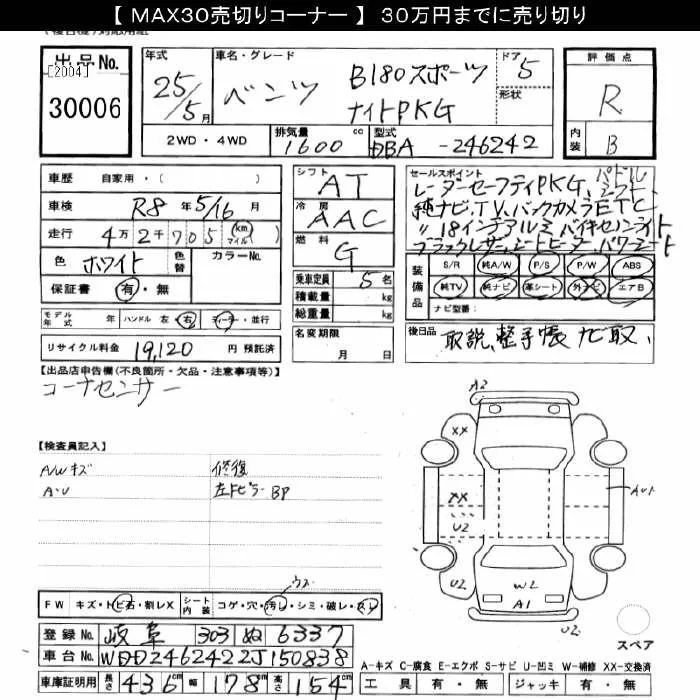 【 MAX30売切りコーナー 】 30万円までに売り切り
出品No.
[2004]
30006
年式
25/5月
車名・グレード
ベンツ
B180スポーツ
ナイトPKG
ドア
5
形状
評価点
R
内装
B
2WD・4WD
排気量
1600 cc
型式
DBA -246242
車歴 自家用・( )
車検 R8年5/16月
走行 4万2千705 km マイル
色 ホワイト 色替 カラーNo.
保証書 有・無
モデル年式 年 ハンドル 左・右 ディーラー・並行
リサイクル料金 19,120 円 預託済
シフト
AT
冷房
AAC
燃料
G
乗車定員 5名
積載量 kg
総重量 kg
名変期限
月 日
セールスポイント
レーダーセーフティPKG、パドルシフト
純ナビ、TV、バックカメラETC
〃18インチアルミ バイキセノンライト
ブラックレザー、シートヒーター、パワーシート
装備品
S/R 純A/W P/S P/W ABS
純TV 純ナビ 革シート 外ナビ エアB
ナビ型番:
後日品 取説、整手帳 ナビ取、
【出品店申告欄(不良箇所・欠品・注意事項等)】
コーナーセンサー
【検査員記入】
A/Wキズ
A・U
修復
左Fピラー BP
A2
XX
XX
U2
U2
W2
A1
U2
AU1
スペア
ウス
FW キズ・トビ石・割レX シート内装 コゲ・穴・汚レ・シミ・破レ・スレ
登録No. 岐阜 303 ぬ 6337
車台No. WDD2462422J150838
車庫証明用 長さ 436cm 幅 178cm 高さ 154cm
A-キズ C-腐食 E-エクボ S-サビ U-凹ミ W-補修 XX-交換済
工具 有・無 ジャッキ 有・無